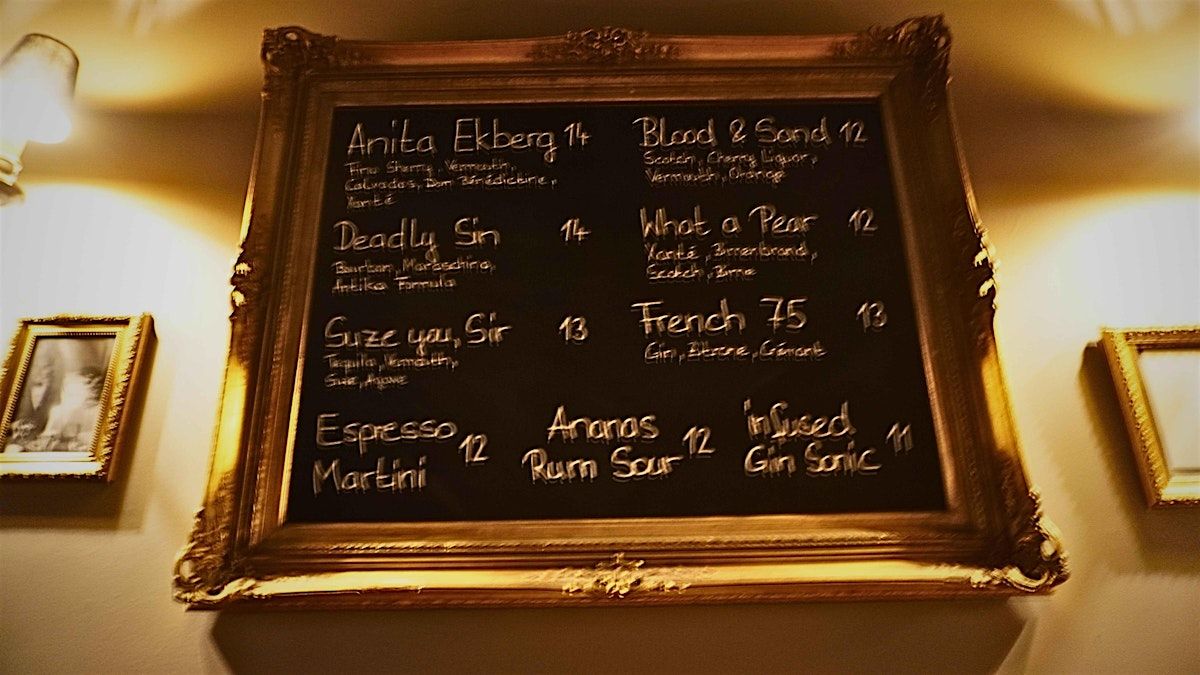 Anita Ekberg 14
Fino Sherry, Vermouth,
Calvados, Dom Bénédictine,
Xanté
Blood & Sand 12
Scotch, Cherry Liquor,
Vermouth, Orange
Deadly Sin 14
Bourbon, Maraschino,
Antika Formula
What a Pear 12
Xanté, Birnenbrand,
Scotch, Birne
Suze you, Sir 13
Tequila, Vermouth,
Suze, Agave
French 75 13
Gin, Zitrone, Crémant
Espresso
Martini 12
Ananas
Rum Sour 12
infused
Gin Sonic 11